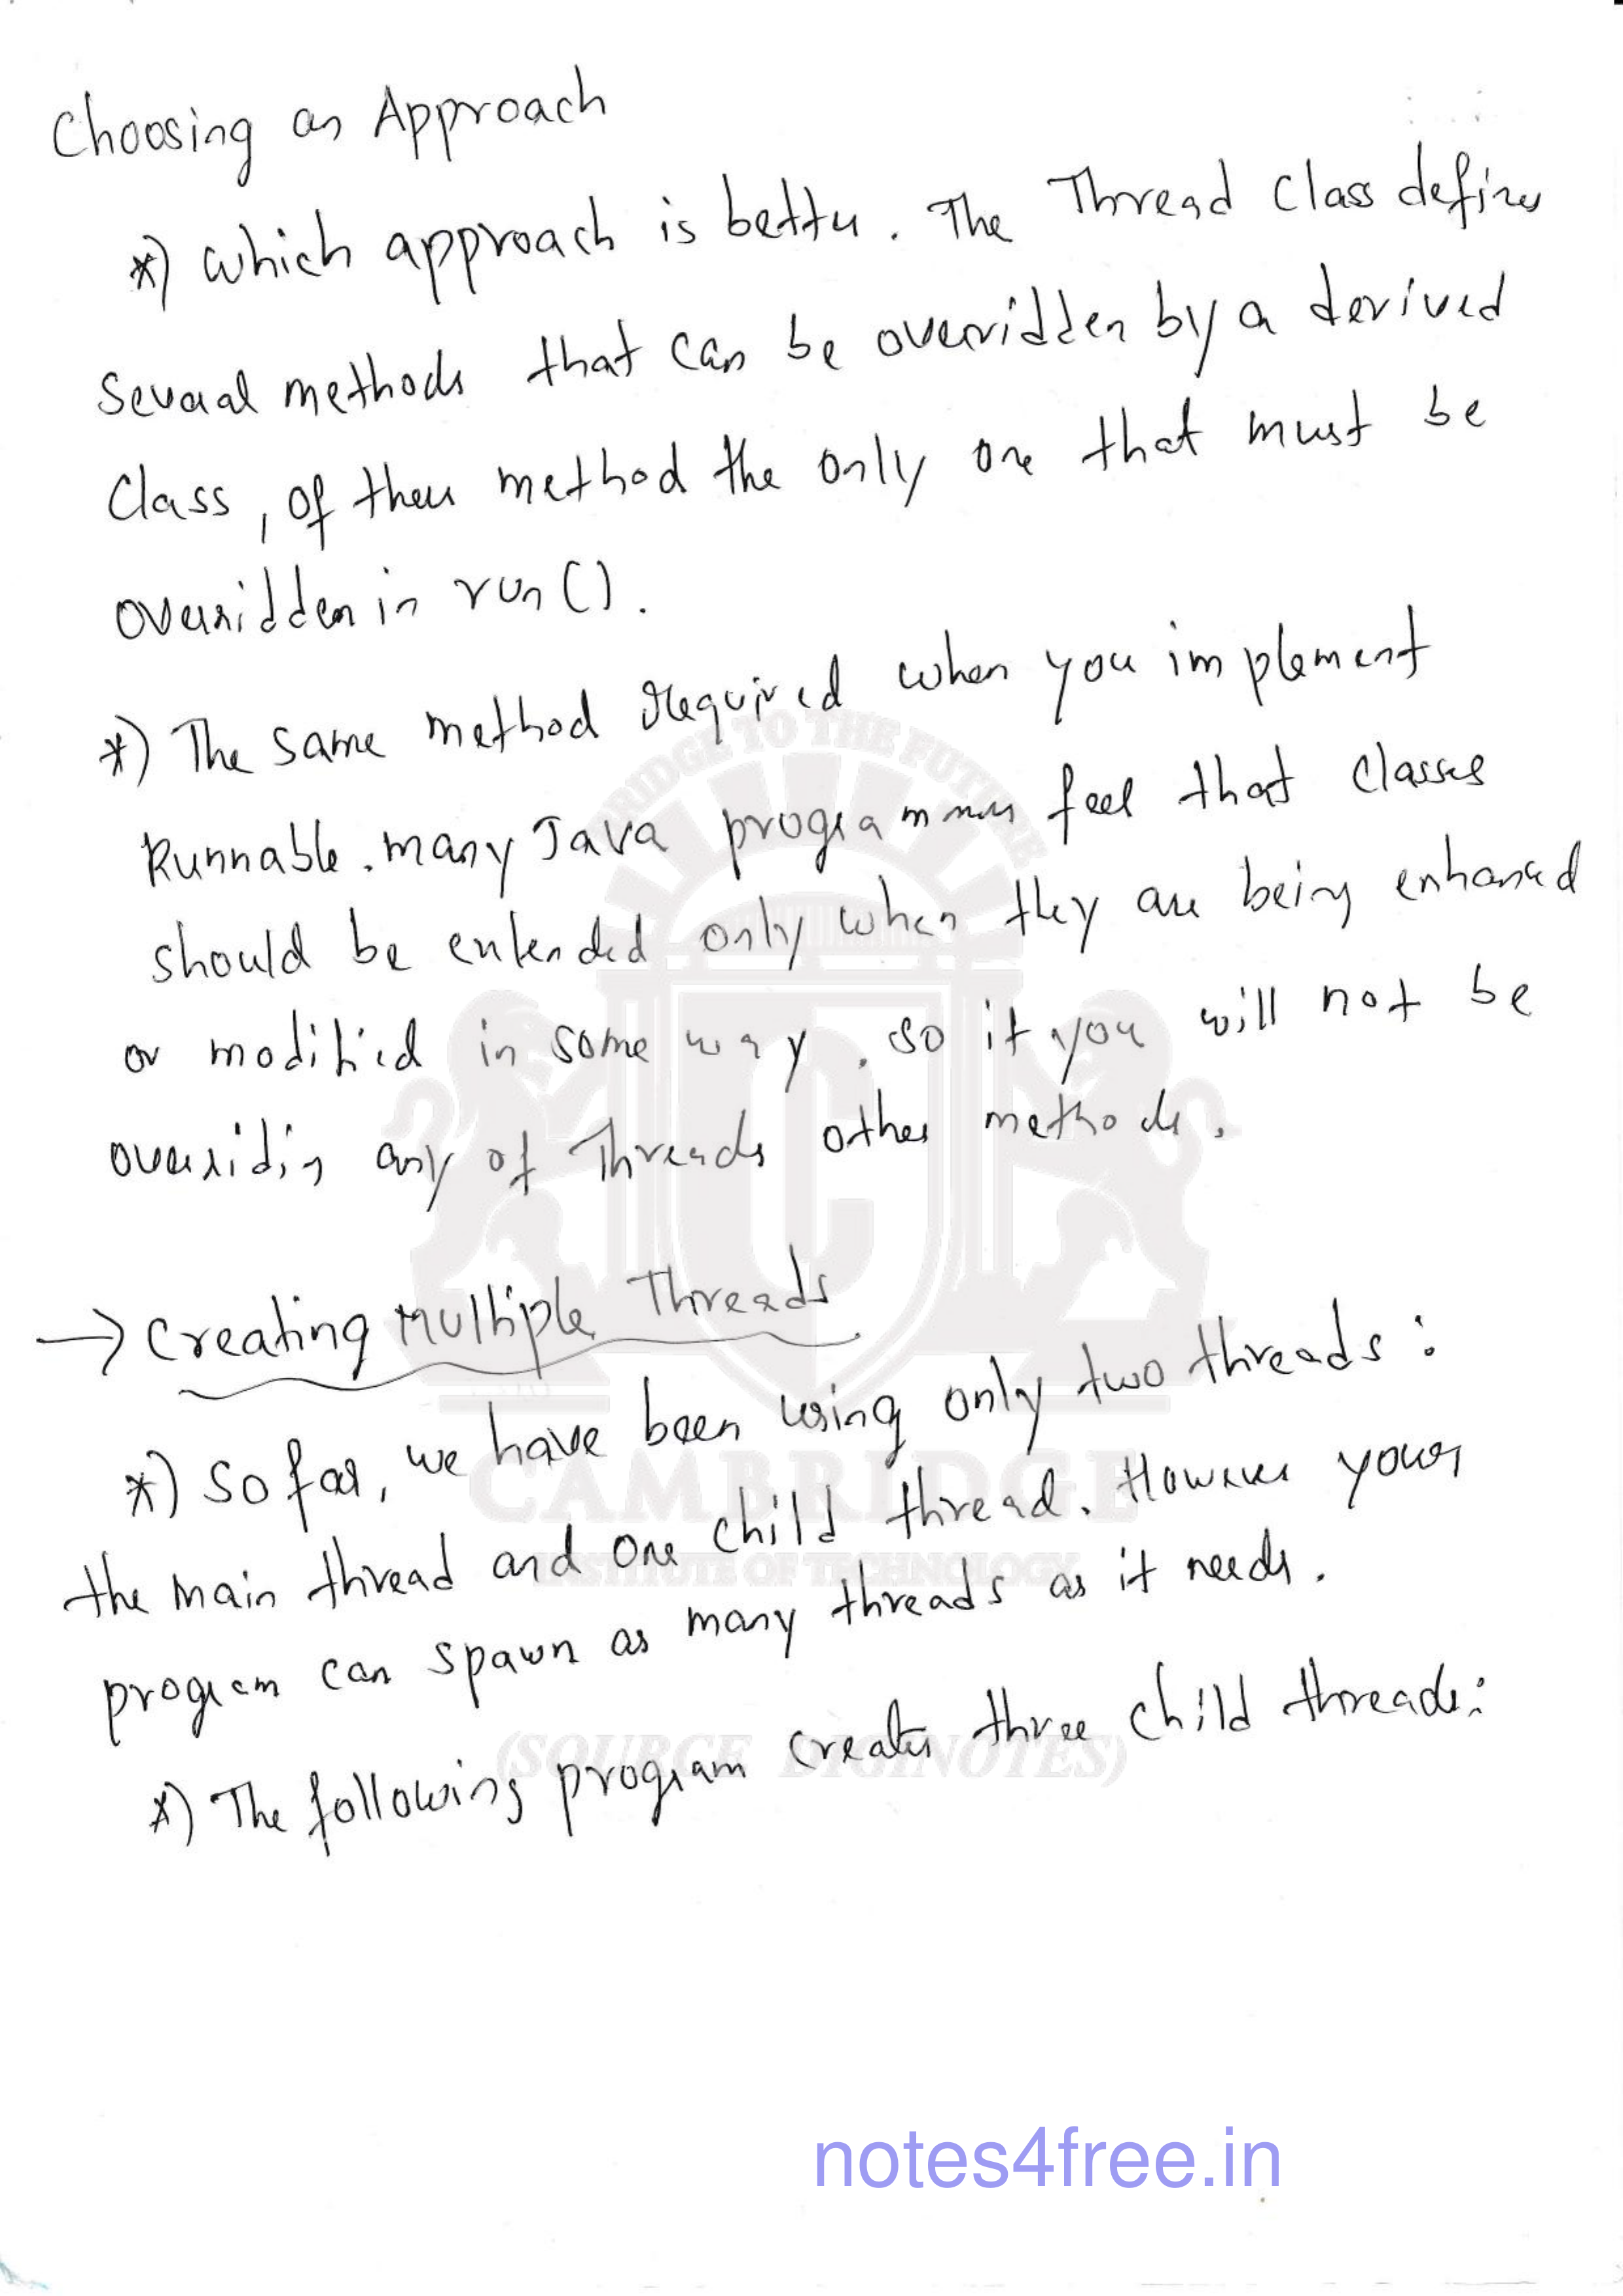 Choosing an Approach
*) which approach is better. The Thread Class defines
Several methods that can be overridden by a derived
Class, of these method the only one that must be
overridden in run().
*) The same method required when you implement
Runnable. many Java programmers feel that classes
should be extended only when they are being enhanced
or modified in some way. so if you will not be
overriding any of Threads other methods.
→ Creating Multiple Threads
*) So far, we have been using only two threads:
the main thread and one child thread. However your
program can spawn as many threads as it needs.
*) The following program creates three child threads:
BRIDGE TO THE FUTURE
C
CAMBRIDGE
INSTITUTE OF TECHNOLOGY
(SOURCE DIGINOTES)
notes4free.in